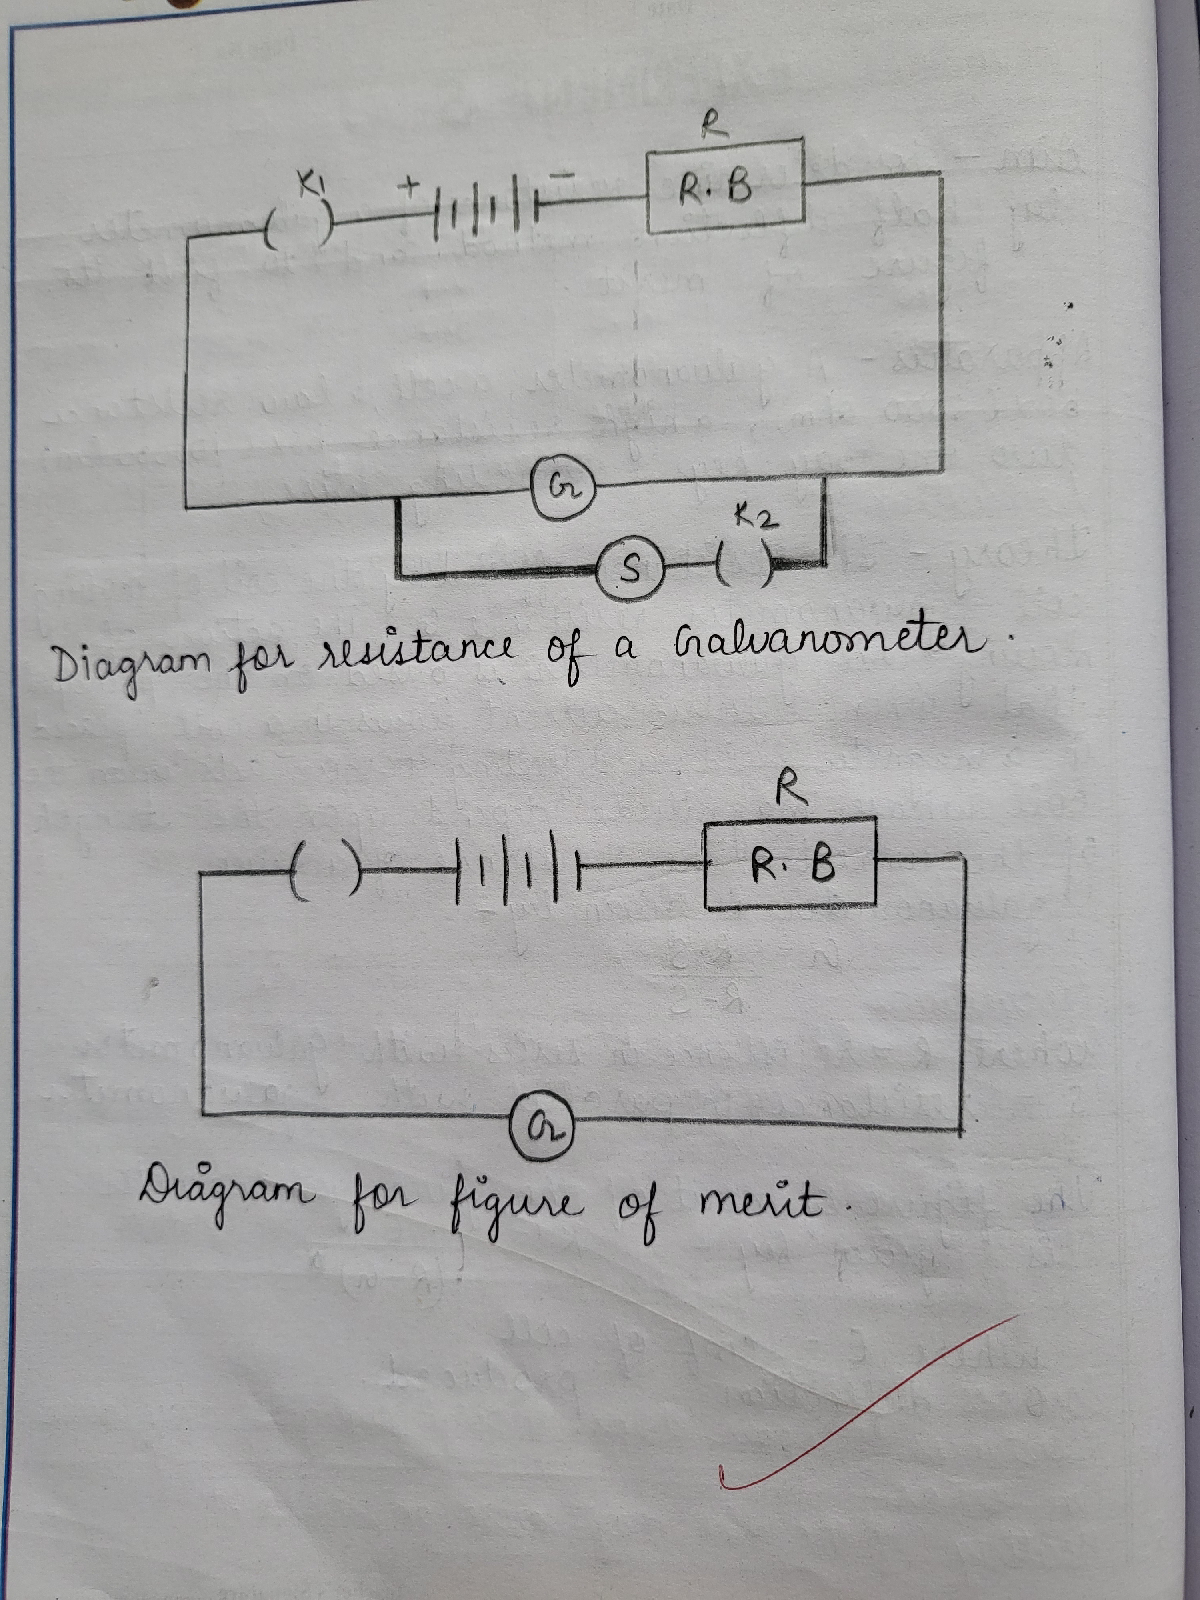 R
K1 + − R.B
G
K2
S
Diagram for resistance of a Galvanometer.
R
R.B
G
Diagram for figure of merit.